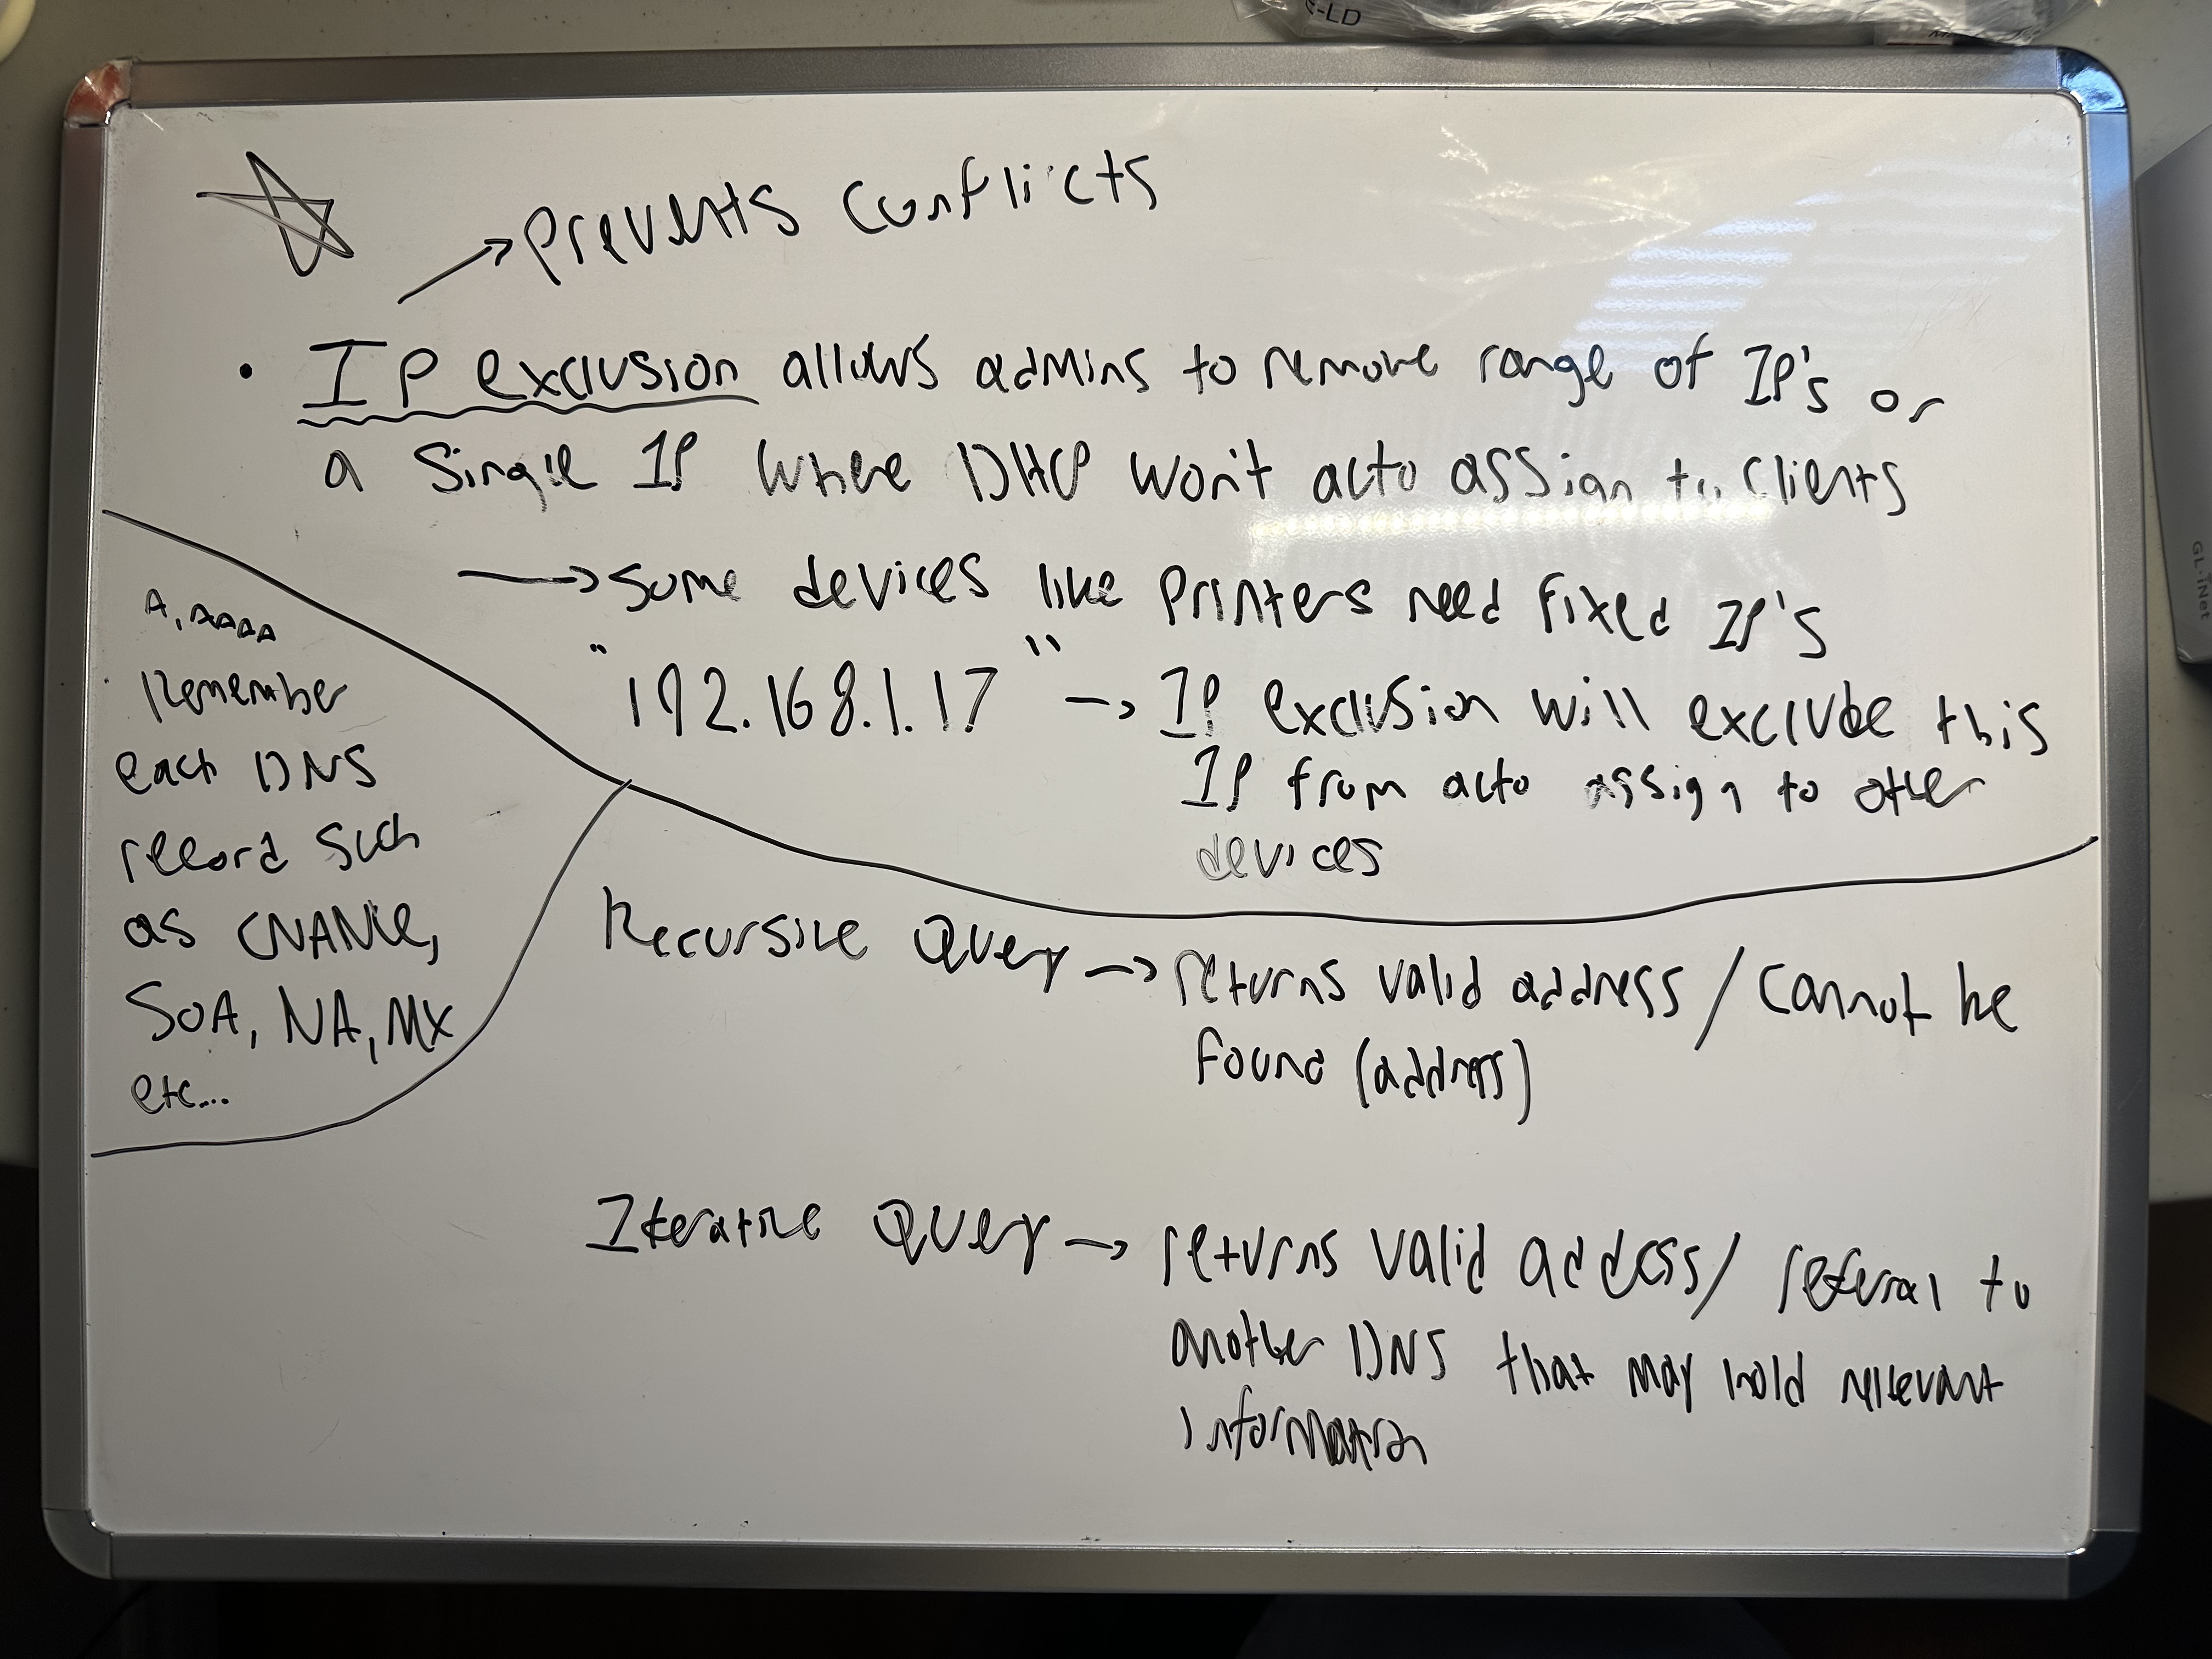 E-LD
prevents conflicts
• IP exclusion allows admins to remove range of IP's or
a single IP where DHCP won't auto assign to clients
→ some devices like printers need fixed IP's
"192.168.1.17" → IP exclusion will exclude this
IP from auto assign to other
devices
A, AAAA
Remember
each DNS
record such
as CNAME,
SOA, NA, MX
etc...
Recursive Query → returns valid address / cannot be
found (address)
Iterative Query → returns valid address / referral to
another DNS that may hold rellevant
information
GL·iNet